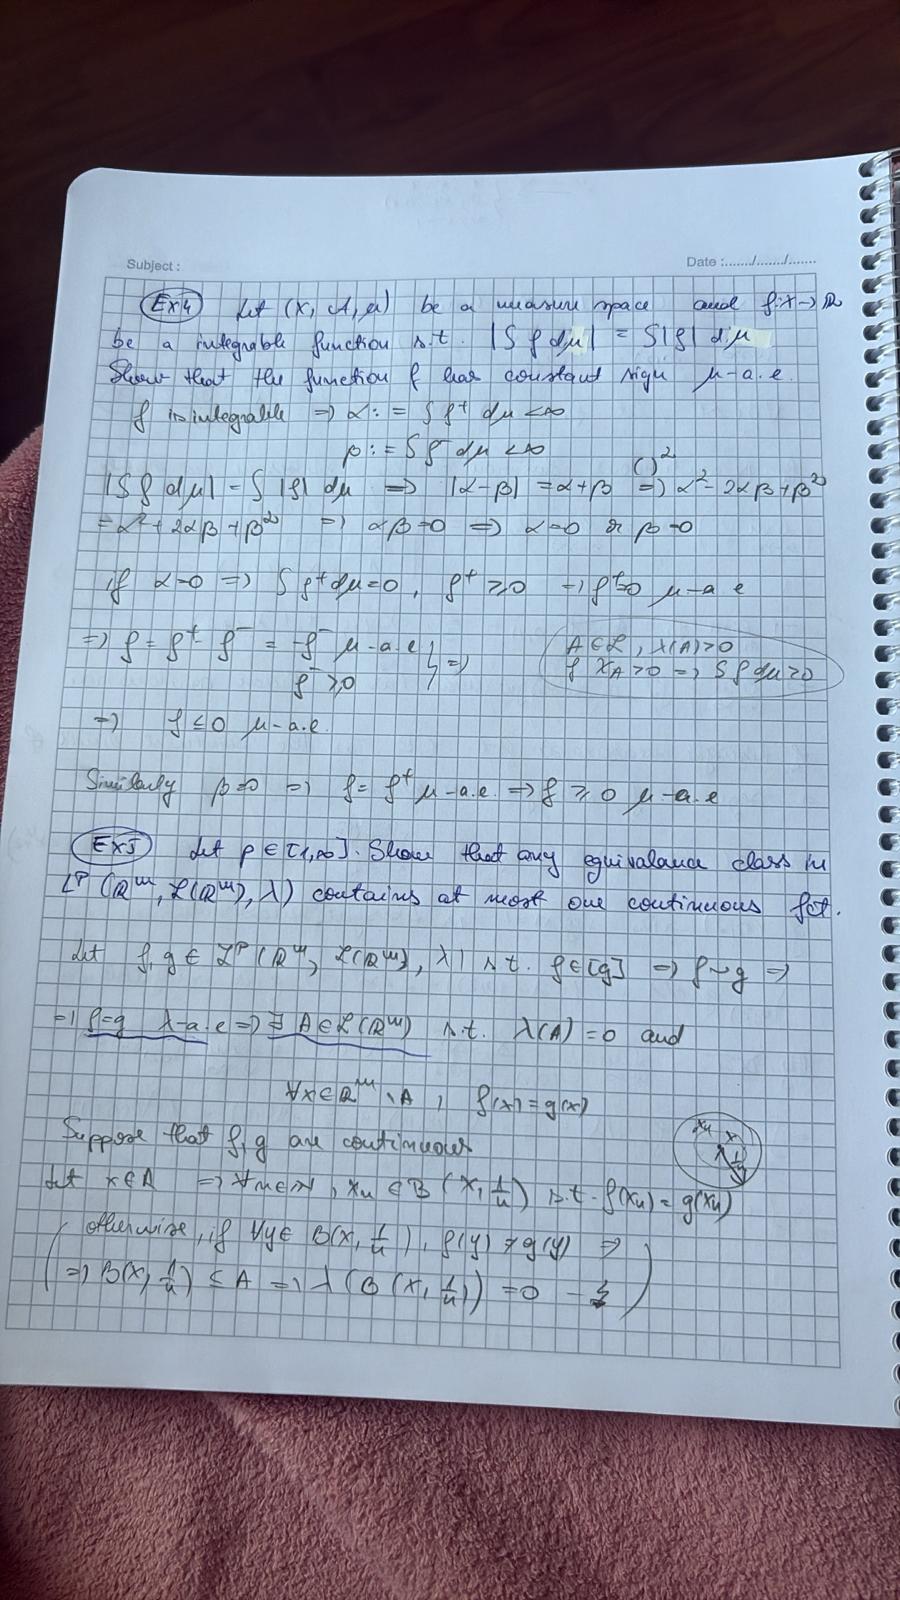 Subject :
Date :....../....../......
Ex4 Let (X, A, μ) be a measure space and f: X → ℝ
be a integrable function s.t. |∫ f dμ| = ∫|f| dμ
Show that the function f has constant sign μ-a.e.
f is integrable ⇒ α := ∫ f⁺ dμ < ∞
β := ∫ f⁻ dμ < ∞
( )²
|∫ f dμ| = ∫ |f| dμ ⇒ |α-β| = α+β ⇒ α² - 2αβ + β²
= α² + 2αβ + β² ⇒ αβ=0 ⇒ α=0 or β=0
if α=0 ⇒ ∫ f⁺ dμ=0, f⁺ ⩾ 0 ⇒ f⁺=0 μ-a e
⇒ f = f⁺ - f⁻ = -f⁻ μ-a.e } ⇒
f⁻ ⩾ 0
A ∈ L, λ(A)>0
f χ_A > 0 ⇒ ∫ f dμ > 0
⇒ f ≤ 0 μ-a.e.
Similarly β=0 ⇒ f = f⁺ μ-a.e. ⇒ f ⩾ 0 μ-a.e
Ex5 Let p ∈ [1,∞]. Show that any equivalance class in
Lᵖ (ℝᵐ, L(ℝᵐ), λ) contains at most one continuous fct.
Let f, g ∈ Lᵖ (ℝᵐ, L(ℝᵐ), λ) s.t. f ∈ [g] ⇒ f ~ g ⇒
⇒ f=g λ-a.e ⇒ ∃ A ∈ L(ℝᵐ) s.t. λ(A) = 0 and
∀x ∈ ℝᵐ \ A, f(x) = g(x)
Suppose that f, g are continuous
xₙ x y
Let x ∈ A ⇒ ∀n ∈ ℕ, xₙ ∈ B (x, 1/n) s.t. f(xₙ) = g(xₙ)
( otherwise, if ∀y ∈ B(x, 1/n), f(y) ≠ g(y) ⇒
⇒ B(x, 1/n) ⊆ A ⇒ λ (B (x, 1/n)) = 0 - ↯ )